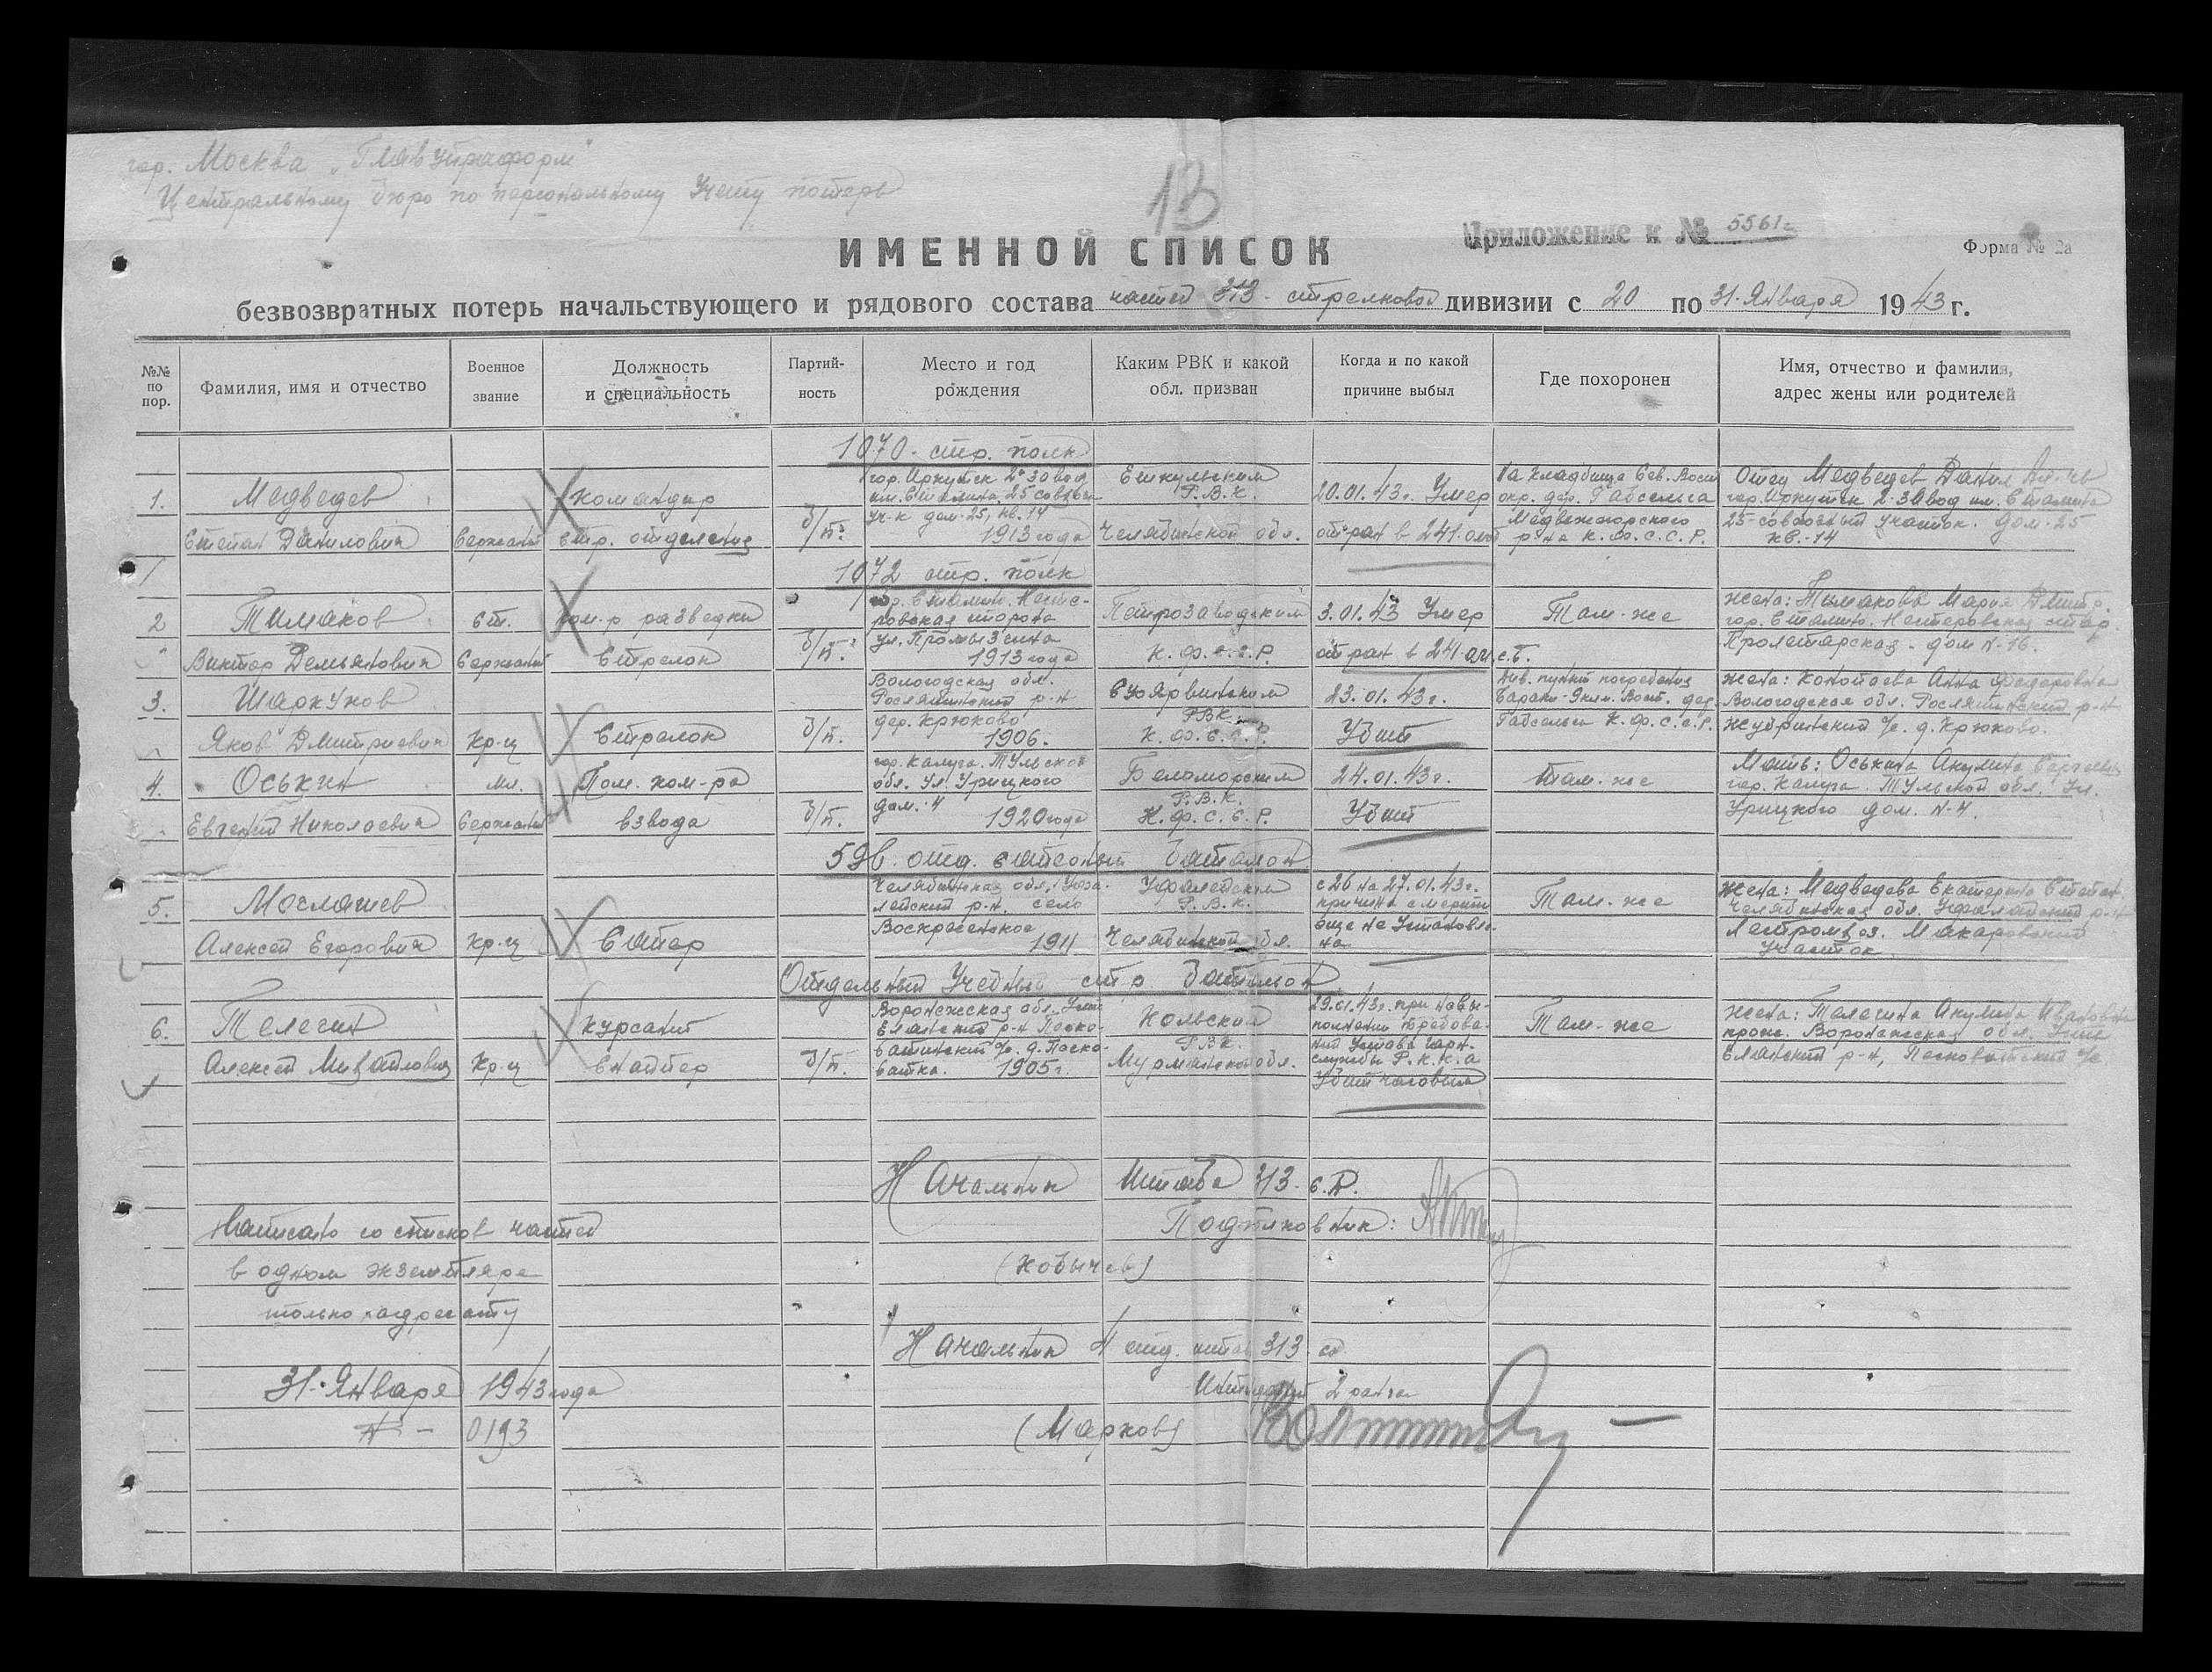 гор. Москва "Главупраформ"
Центральному бюро по персональному Учету потерь
13
Приложение к № 5561с
Форма № 2а
ИМЕННОЙ СПИСОК
безвозвратных потерь начальствующего и рядового состава частей 313 - стрелковой дивизии с 20 по 31. Января 1943 г.
№№ по пор.
Фамилия, имя и отчество
Военное звание
Должность и специальность
Партийность
Место и год рождения
Каким РВК и какой обл. призван
Когда и по какой причине выбыл
Где похоронен
Имя, отчество и фамилия, адрес жены или родителей
1070 - стр. полк
1.
Медведев
Степан Данилович
Сержант
Командир
стр. отделения
б/п.
гор. Иркутск 2й завод
им. Сталина, 25 совзвез.
уч-к дом-25, кв. 14
1913 года
Еткульским
Р.В.К.
Челябинской обл.
20.01.43г. Умер
от ран в 241.омсб
На кладбище Сев. Вост
окр. дер. Габсельга
Медвежегорского
р-на К.Ф.С.С.Р.
Отец Медведев Данил
гор. Иркутск 2-завод им. Сталина
25-совхозный участок. дом-25
кв.-14
1072 стр. полк
2
Тимаков
Виктор Демьянович
Ст.
Сержант
Ком-р разведки
Стрелок
б/п.
гор. Сталин.
ровская сторона
ул. Промызеина
1913 года
Петрозаводским
К.Ф.С.С.Р.
3.01.43 Умер
от ран в 241.ом.с.б.
Там-же
Жена: Тимакова Мария Дмитр.
гор. Сталино. Нестеровская стор.
Пролетарская - дом N-16.
3.
Шаркунов
Яков Дмитриевич
Кр-ц
Стрелок
б/п.
Вологодская обл.
Рослятинский р-н
дер. Крюково
1906.
Суоярвинским
РВК.
К.Ф.С.С.Р.
23.01.43г.
Убит
Див. пункт погребения
Вост. дер.
Габсельги К.Ф.С.С.Р.
Жена: Конопаева Анна Федоровна
Вологодская обл. Рослятинский р-н
с/с. д. Крюково.
4.
Оськин
Евгений Николаевич
Мл.
Сержант
Пом. ком-ра
взвода
б/п.
гор. Калуга. Тульской
обл. ул. Урицкого
дом. 4
1920 года
Беломорским
Р.В.К.
К.Ф.С.С.Р.
24.01.43г.
Убит
Там-же
Мать: Оськина Акулина Сергеевна
гор. Калуга. Тульской обл. Ул.
Урицкого дом. N-4.
592. отд. саперный батальон
5.
Маслашев
Алексей Егорович
Кр-ц
Сапер
Челябинская обл. Уфа-
лейский р-н. село
Воскресенское
1911
Уфалейским
Р.В.К.
Челябинской обл.
с 26 на 27.01.43г.
причина смерти
еще не установле-
на
Там-же
Жена: Медведева Екатерина Степан.
Челябинская обл. Уфалейский р-н
Леспромхоз. Макаровский
Участок.
Отдельный Учебный стр батальон
6.
Телегин
Алексей Михайлович
Кр-ц
Курсант
Снайпер
б/п.
Воронежская обл.
р-н Песко-
ватинский с/с. д. Песко-
ватка. 1905г.
Кольским
РВК.
Мурманской обл.
29.01.43г. при невы-
полнении требова-
ний Устава гарн.
службы Р.К.К.А
Убит часовым
Там-же
Жена: Телегина Акулина Ивановна
прож. Воронежская обл.
р-н, Песковатский с/с
Начальник Штаба 313. С.Д.
Подполковник:
(Кобычев)
Написано со списков частей
в одном экземпляре
только адресату
Начальник 4 отд. штаба 313. сд
Интендант 2 ранга
(Марков)
31. Января 1943 года
N - 0193